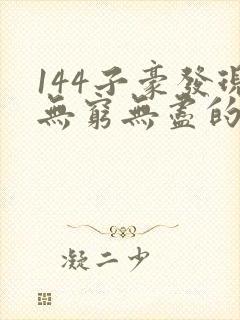 144子豪發現
無窮無盡的
凝二少